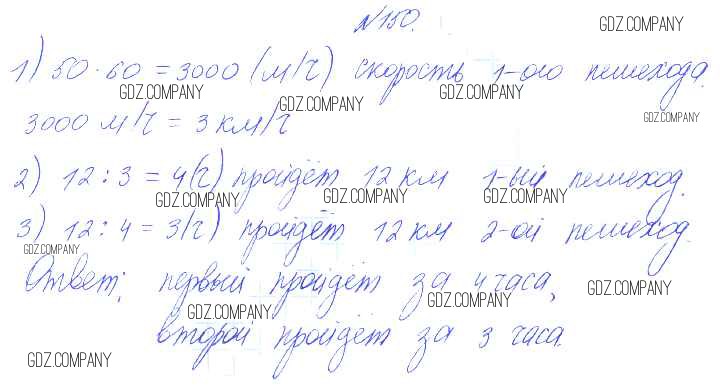 №150.
GDZ.COMPANY
1) 50 · 60 = 3000 (м/ч) скорость 1-ого пешехода.
GDZ.COMPANY GDZ.COMPANY GDZ.COMPANY
3000 м/ч = 3 км/ч
GDZ.COMPANY
2) 12 : 3 = 4(ч) пройдёт 12 км 1-ый пешеход.
GDZ.COMPANY GDZ.COMPANY GDZ.COMPANY
3) 12 : 4 = 3(ч) пройдёт 12 км 2-ой пешеход.
GDZ.COMPANY
Ответ: первый пройдёт за 4 часа,
GDZ.COMPANY GDZ.COMPANY GDZ.COMPANY
второй пройдёт за 3 часа.
GDZ.COMPANY